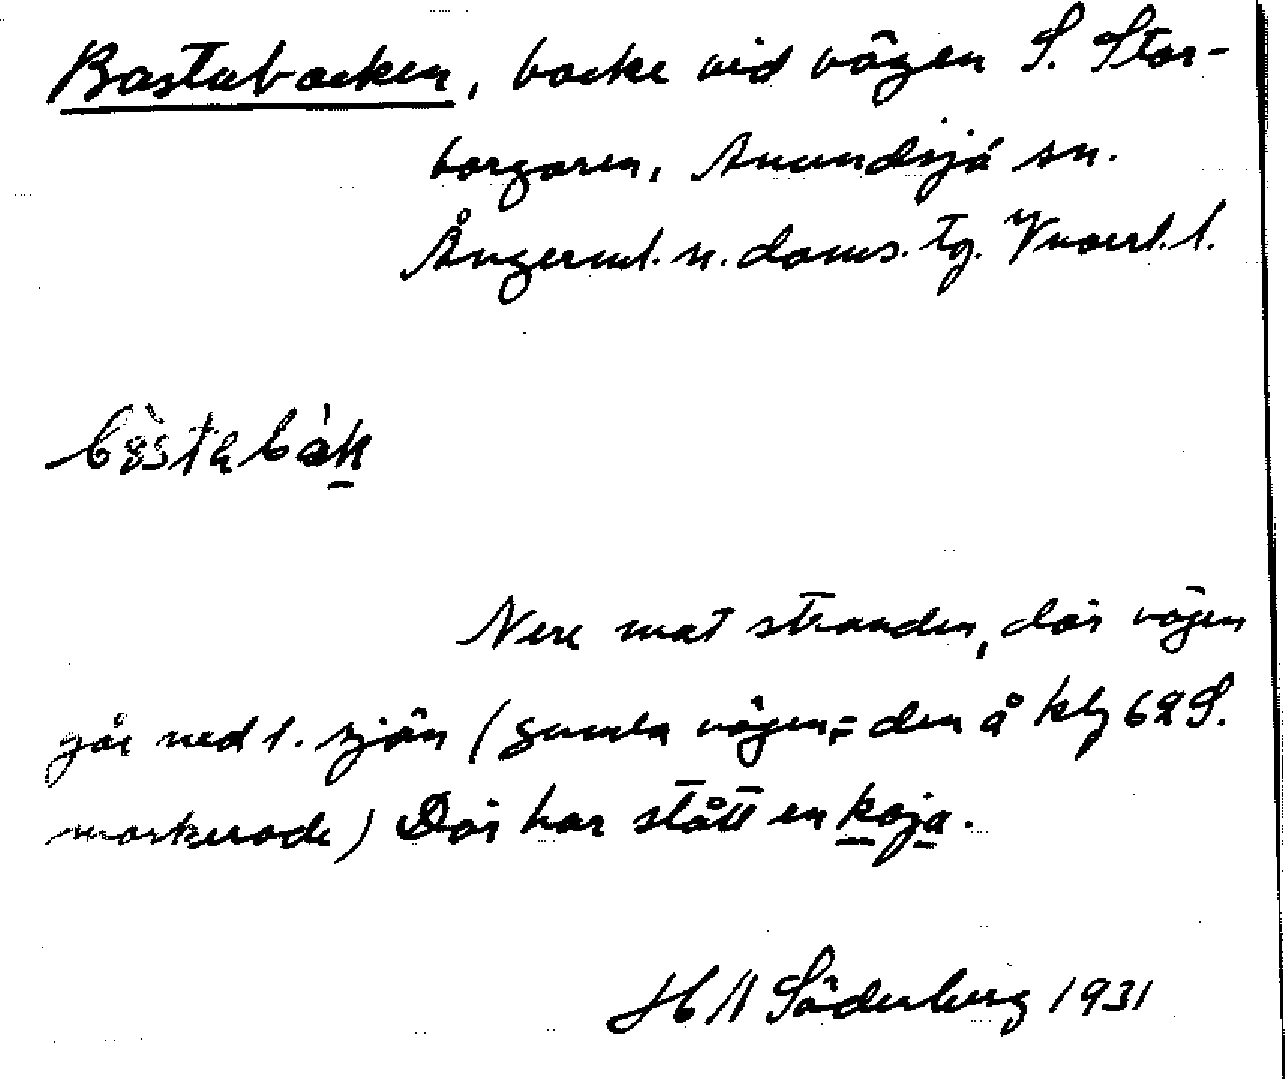 Bastubacken, backe vid vägen S. Stor-
borgaren, Anundsjö sn.
Ångerml. n. doms. tg. Västerb. l.
Nere mot stranden, där vägen
går ned t. sjön (gamla vägen = den å kbg 62 S.
markerade) Där har stått en koja.
H M Söderberg 1931